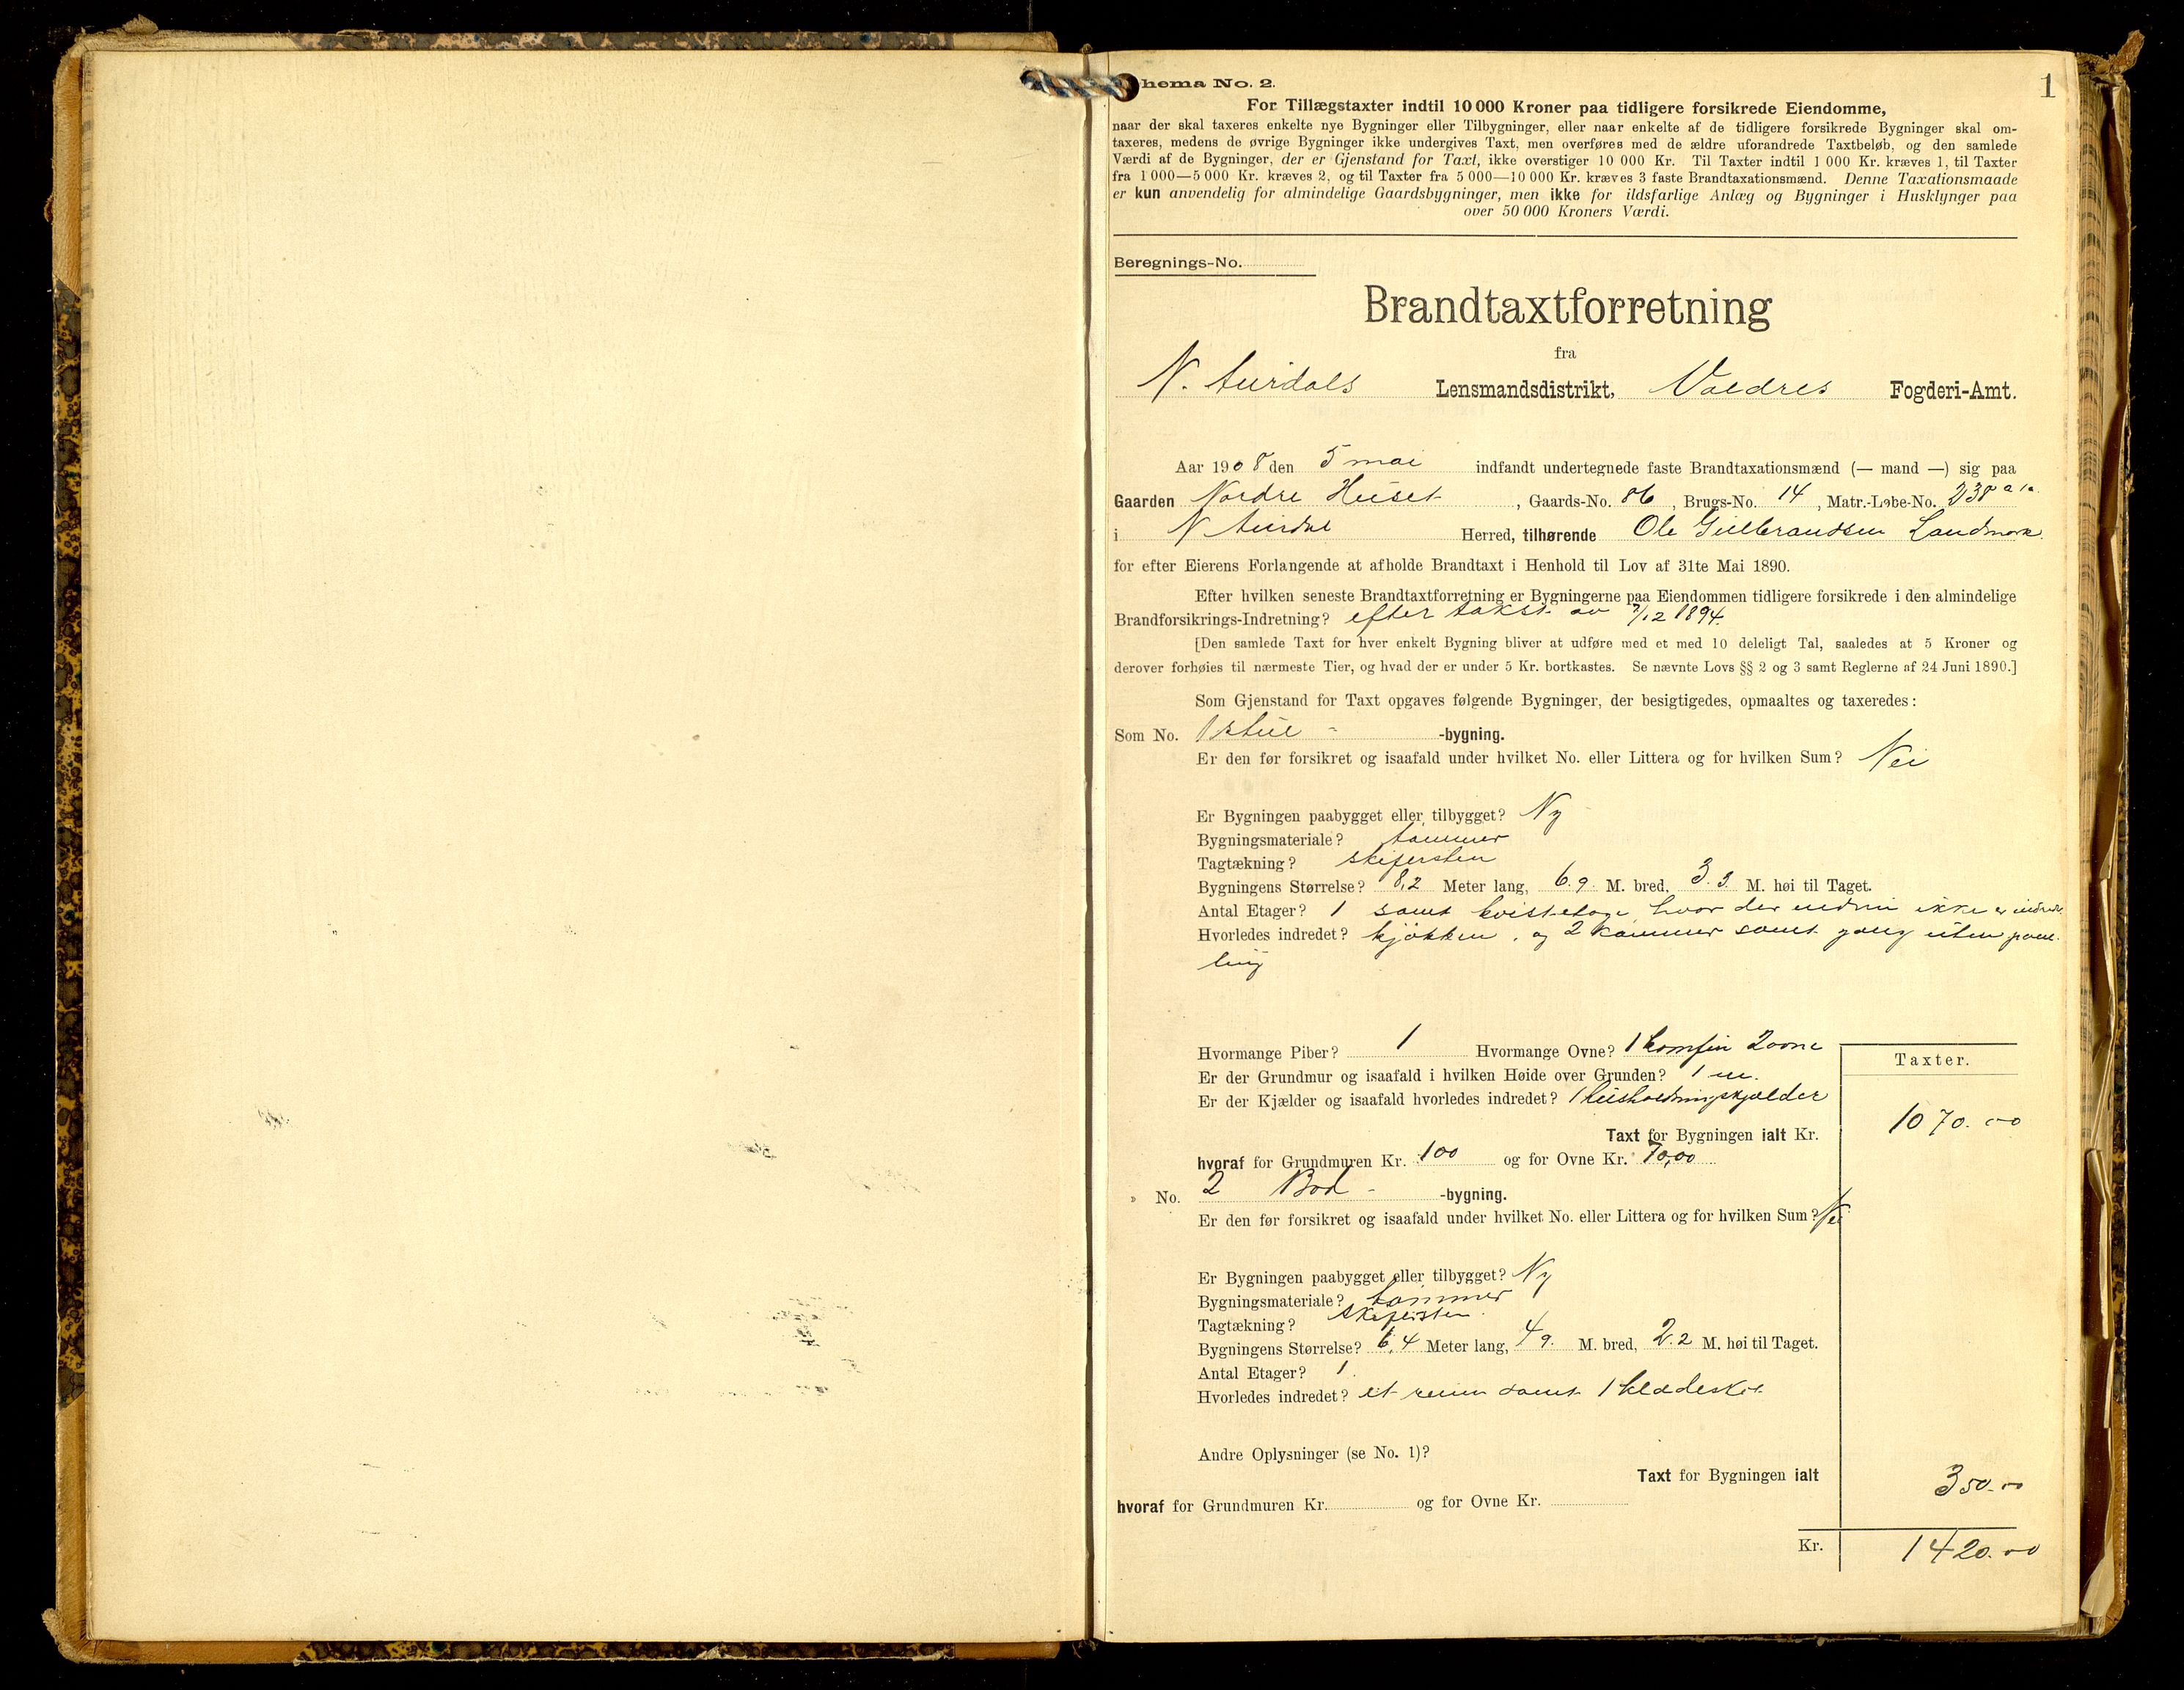 1
hema No. 2.
For Tillægstaxter indtil 10 000 Kroner paa tidligere forsikrede Eiendomme,
naar der skal taxeres enkelte nye Bygninger eller Tilbygninger, eller naar enkelte af de tidligere forsikrede Bygninger skal om-
taxeres, medens de øvrige Bygninger ikke undergives Taxt, men overføres med de ældre uforandrede Taxtbeløb, og den samlede
Værdi af de Bygninger, der er Gjenstand for Taxt, ikke overstiger 10 000 Kr. Til Taxter indtil 1 000 Kr. kræves 1, til Taxter
fra 1 000—5 000 Kr. kræves 2, og til Taxter fra 5 000—10 000 Kr. kræves 3 faste Brandtaxationsmænd. Denne Taxationsmaade
er kun anvendelig for almindelige Gaardsbygninger, men ikke for ildsfarlige Anlæg og Bygninger i Husklynger paa
over 50 000 Kroners Værdi.
Beregnings-No.
Brandtaxtforretning
fra
N. Aurdals Lensmandsdistrikt, Valdres Fogderi-Amt.
Aar 1908 den 5 mai indfandt undertegnede faste Brandtaxationsmænd (— mand —) sig paa
Gaarden Nordre Huset, Gaards-No. 86, Brugs-No. 14, Matr.-Løbe-No. 238 a
i N Aurdal Herred, tilhørende Ole Gulbrandsen Landmark
for efter Eierens Forlangende at afholde Brandtaxt i Henhold til Lov af 31te Mai 1890.
Efter hvilken seneste Brandtaxtforretning er Bygningerne paa Eiendommen tidligere forsikrede i den almindelige
Brandforsikrings-Indretning? efter takst av 7/12 1894.
[Den samlede Taxt for hver enkelt Bygning bliver at udføre med et med 10 deleligt Tal, saaledes at 5 Kroner og
derover forhøies til nærmeste Tier, og hvad der er under 5 Kr. bortkastes. Se nævnte Lovs §§ 2 og 3 samt Reglerne af 24 Juni 1890.]
Som Gjenstand for Taxt opgaves følgende Bygninger, der besigtigedes, opmaaltes og taxeredes:
Som No. 1 stue - -bygning.
Er den før forsikret og isaafald under hvilket No. eller Littera og for hvilken Sum? Nei
Er Bygningen paabygget eller tilbygget? Ny
Bygningsmateriale? tømmer
Tagtækning? skifersten
Bygningens Størrelse? 8,2 Meter lang, 6.9. M. bred, 3.3. M. høi til Taget.
Antal Etager? 1 samt kvistetage, hvor der endnu ikke er indredt
Hvorledes indredet? kjøkken, og 2 kammer samt gang uten pane-
ling
Hvormange Piber? 1 Hvormange Ovne? 1 komfur 2 ovne
Er der Grundmur og isaafald i hvilken Høide over Grunden? 1 m.
Er der Kjælder og isaafald hvorledes indredet? 1 husholdningskjælder
Taxter.
Taxt for Bygningen ialt Kr. 1070.00
hvoraf for Grundmuren Kr. 100 og for Ovne Kr. 70,00
» No. 2 Bod - -bygning.
Er den før forsikret og isaafald under hvilket No. eller Littera og for hvilken Sum? Nei
Er Bygningen paabygget eller tilbygget? Ny
Bygningsmateriale? tømmer
Tagtækning? skifersten
Bygningens Størrelse? 6,4 Meter lang, 4 9. M. bred, 2.2 M. høi til Taget.
Antal Etager? 1.
Hvorledes indredet? et rum samt 1
Andre Oplysninger (se No. 1)?
Taxt for Bygningen ialt 350.00
hvoraf for Grundmuren Kr. og for Ovne Kr.
Kr. 1420.00